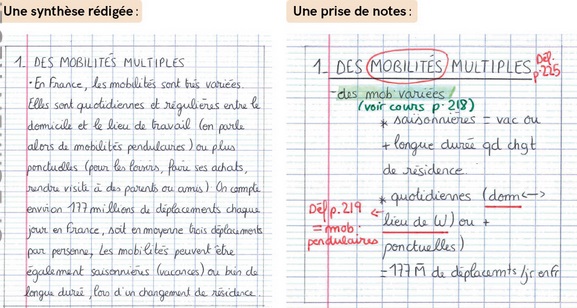 Une synthèse rédigée :
1. DES MOBILITÉS MULTIPLES
- En France, les mobilités sont très variées.
Elles sont quotidiennes et régulières entre le
domicile et le lieu de travail (on parle
alors de mobilités pendulaires) ou plus
ponctuelles (pour les loisirs, faire ses achats,
rendre visite à des parents ou amis). On compte
environ 177 millions de déplacements chaque
jour en France, soit en moyenne trois déplacements
par personne. Les mobilités peuvent être
également saisonnières (vacances) ou bien de
longue durée, lors d'un changement de résidence.
Une prise de notes :
1. DES MOBILITÉS MULTIPLES
Déf.
p.225
- des mob variées
(voir cours p. 218)
* saisonnières = vac ou
+ longue durée qd chgt
de résidence.
* quotidiennes (dom <->
lieu de W) ou +
ponctuelles)
= 177 M de déplacemts /jr en fr
Déf p.219
= mob.
pendulaires